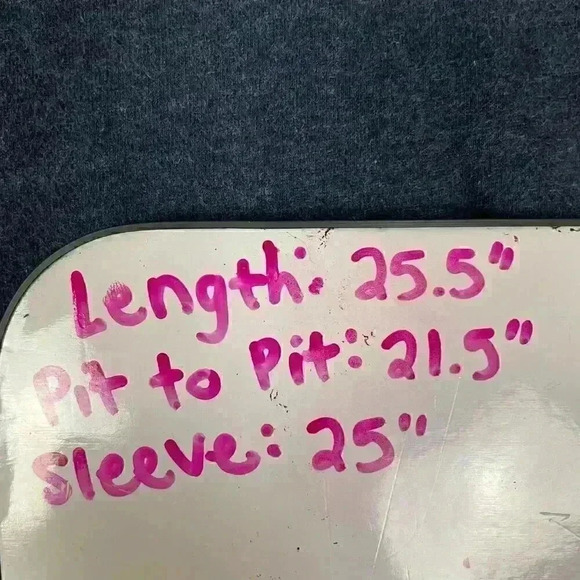 Length: 25.5"
Pit to Pit: 21.5"
Sleeve: 25"